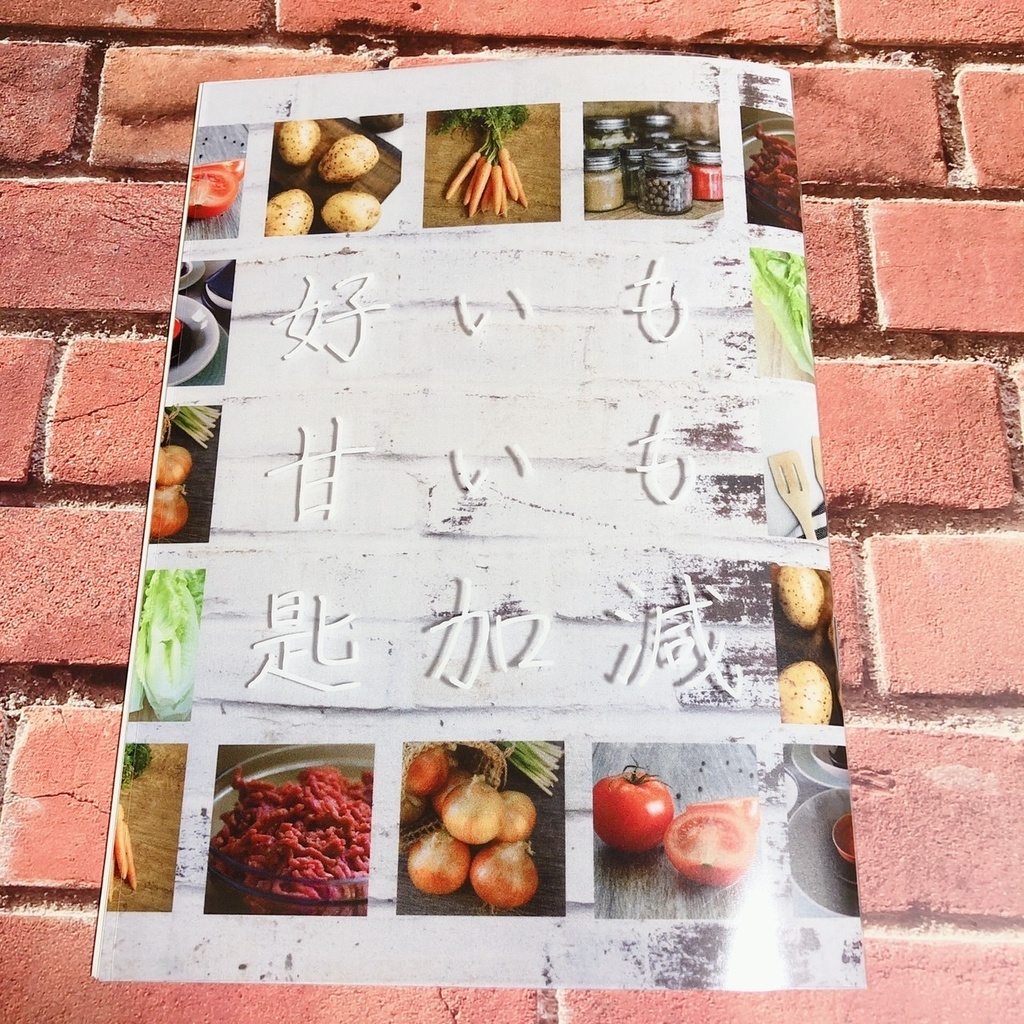 好いも
甘いも
匙加減